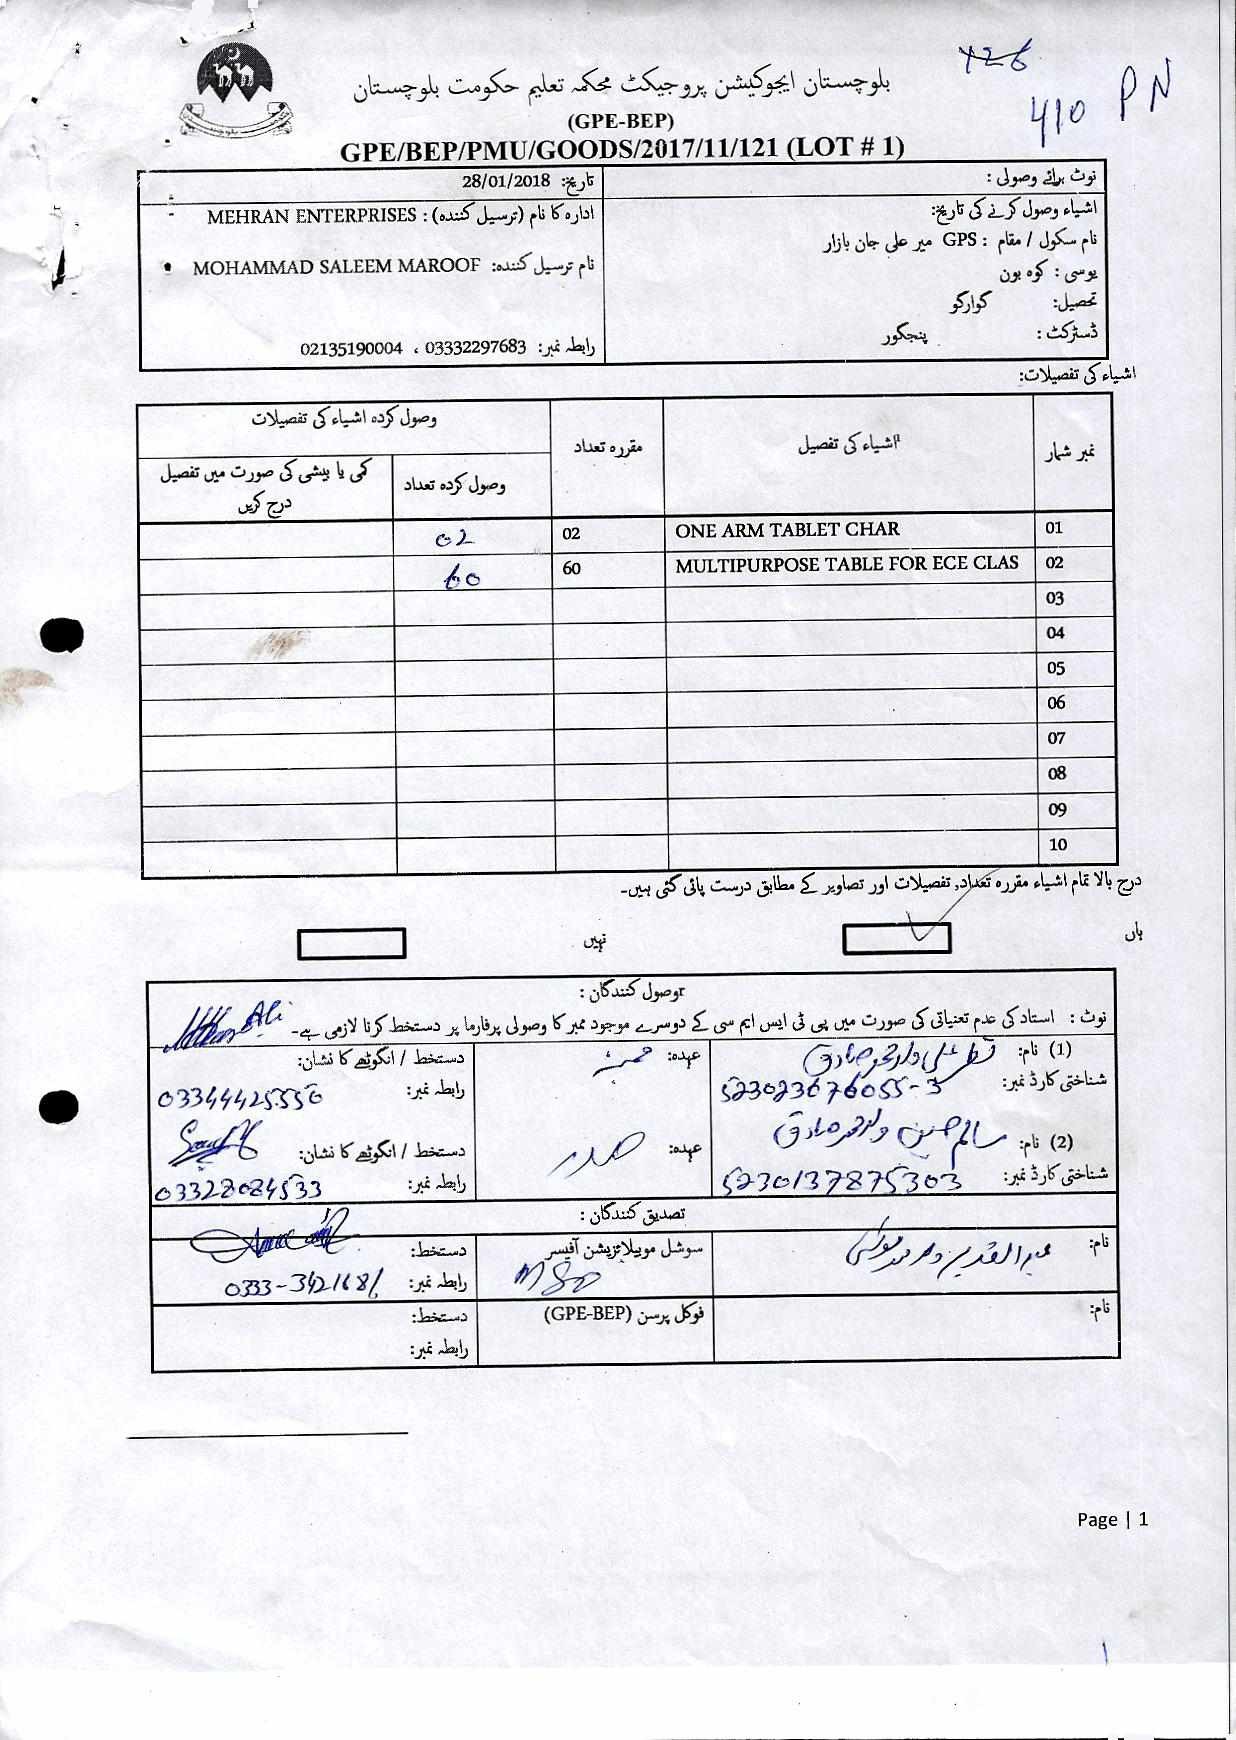 426
410 PN
بلوچستان ایجوکیشن پروجیکٹ محکمہ تعلیم حکومت بلوچستان
(GPE-BEP)
GPE/BEP/PMU/GOODS/2017/11/121 (LOT # 1)
نوٹ برائے وصولی :
اشیاء وصول کرنے کی تاریخ:
نام سکول / مقام : GPS میر علی جان بازار
یوسی : کوہ بون
تحصیل: گوارگو
ڈسٹرکٹ : پنجگور
تاریخ: 28/01/2018
ادارہ کا نام (ترسیل کنندہ) : MEHRAN ENTERPRISES
نام ترسیل کنندہ: MOHAMMAD SALEEM MAROOF
رابطہ نمبر: 03332297683 ، 02135190004
اشیاء کی تفصیلات:
نمبر شمار اشیاء کی تفصیل مقررہ تعداد وصول کردہ اشیاء کی تفصیلات
وصول کردہ تعداد کمی یا بیشی کی صورت میں تفصیل درج کریں
01 ONE ARM TABLET CHAR 02 02
02 MULTIPURPOSE TABLE FOR ECE CLAS 60 60
03
04
05
06
07
08
09
10
درج بالا تمام اشیاء مقررہ تعداد, تفصیلات اور تصاویر کے مطابق درست پائی گئی ہیں۔
ہاں نہیں
وصول کنندگان :
نوٹ : استاد کی عدم تعنیاتی کی صورت میں پی ٹی ایس ایم سی کے دوسرے موجود ممبر کا وصولی پرفارما پر دستخط کرنا لازمی ہے۔
(1) نام: علی ولد محمد صادق عہدہ: ممبر دستخط / انگوٹھے کا نشان: Ali
شناختی کارڈ نمبر: 523023676055-3 رابطہ نمبر: 03344425556
(2) نام: سالم حسین ولد محمد صادق عہدہ: صدر دستخط / انگوٹھے کا نشان:
شناختی کارڈ نمبر: 5230137875303 رابطہ نمبر: 03328084533
تصدیق کنندگان :
نام: عبدالقدیر ولد محمد موسیٰ سوشل موبیلائزیشن آفیسر دستخط:
MSO رابطہ نمبر: 0333-3421681
نام: فوکل پرسن (GPE-BEP) دستخط:
رابطہ نمبر:
Page | 1